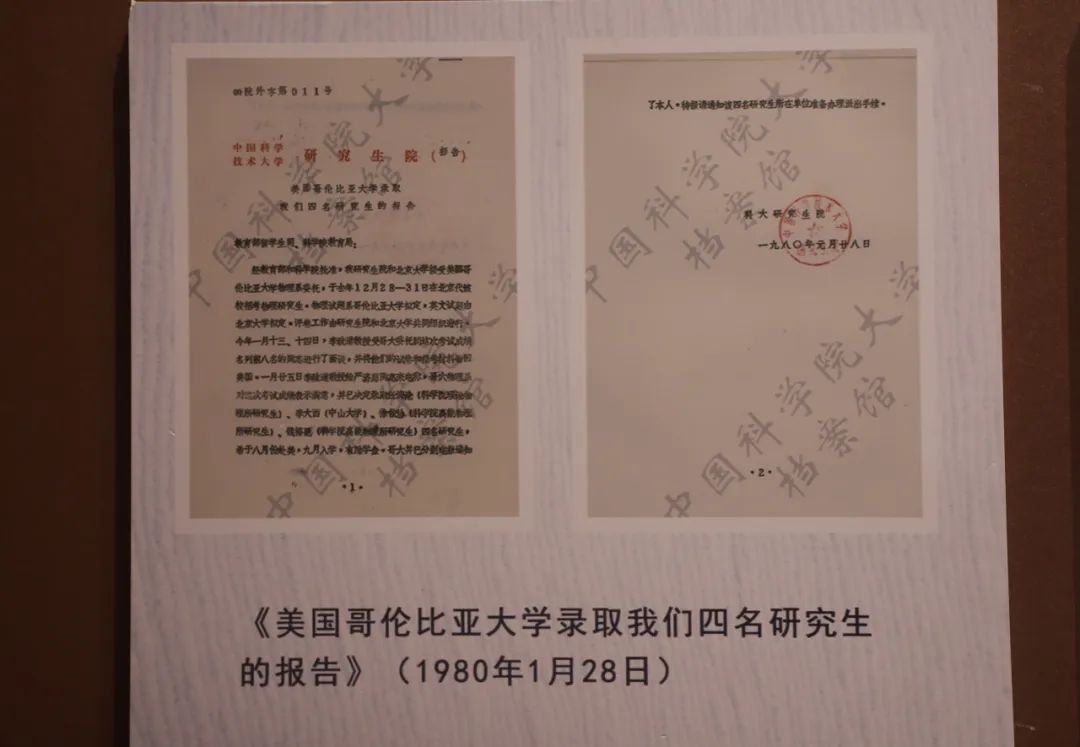 院外字第011号
中国科学
技术大学
研究生院
(报告)
美国哥伦比亚大学录取
我们四名研究生的报告
教育部留学生司、科学院教育局：
经教育部和科学院批准，我研究生院和北京大学接受美国哥
伦比亚大学物理系委托，于去年12月28—31日在北京代被
校招考物理研究生。物理试题系哥伦比亚大学拟定，英文试题由
北京大学拟定。评卷工作由研究生院和北京大学共同组织进行。
今年一月十三、十四日，李政道教授受哥大委托到这次考试成绩
名列前八名的同志进行了面谈，并将他们的试卷和报考材料带回
美国。一月廿五日李政道教授
对这次考试成绩表示满意，并已决定录取
（科学院理论物
理所研究生）、李大西（中山大学）、
（科学院高能物理
所研究生）、
（科学院高能物理所研究生）四名研究生，
希于八月份赴美，九月入学，有助学金。哥大并已分别
通知
·1·
了本人。特报请通知该四名研究生所在单位准备办理派出手续。
科大研究生院
一九八〇年元月廿八日
·2·
中国科学院大学
档案馆
中国科学院大学
档案馆
中国科学院大学
档案馆
中国科学院大学
档案馆
《美国哥伦比亚大学录取我们四名研究生
的报告》（1980年1月28日）